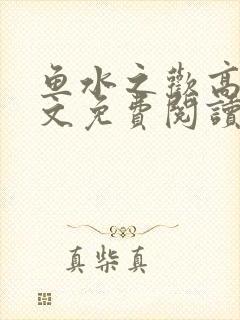 鱼水之歡高
文免費閱讀
真柴真